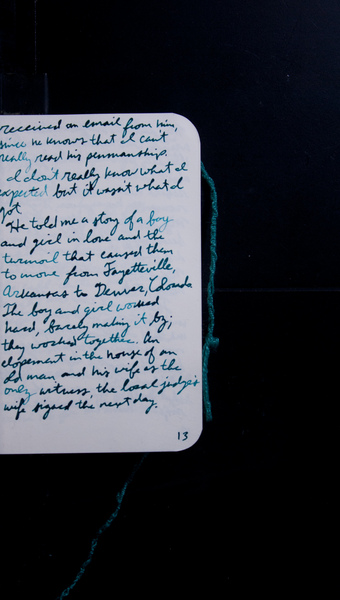 received an email from him,
since he knows that I can't
really read his penmanship.
I don't really know what I
expected but it wasn't what I
got
He told me a story of a boy
and girl in love and the
termoil that caused them
to move from Fayetteville,
Arkansas to Denver, Colorado
The boy and girl worked
hard, barely making it by;
they worked together. An
elopement in the house of an
old man and his wife as the
only witness, the local judge's
wife signed the next day.
13